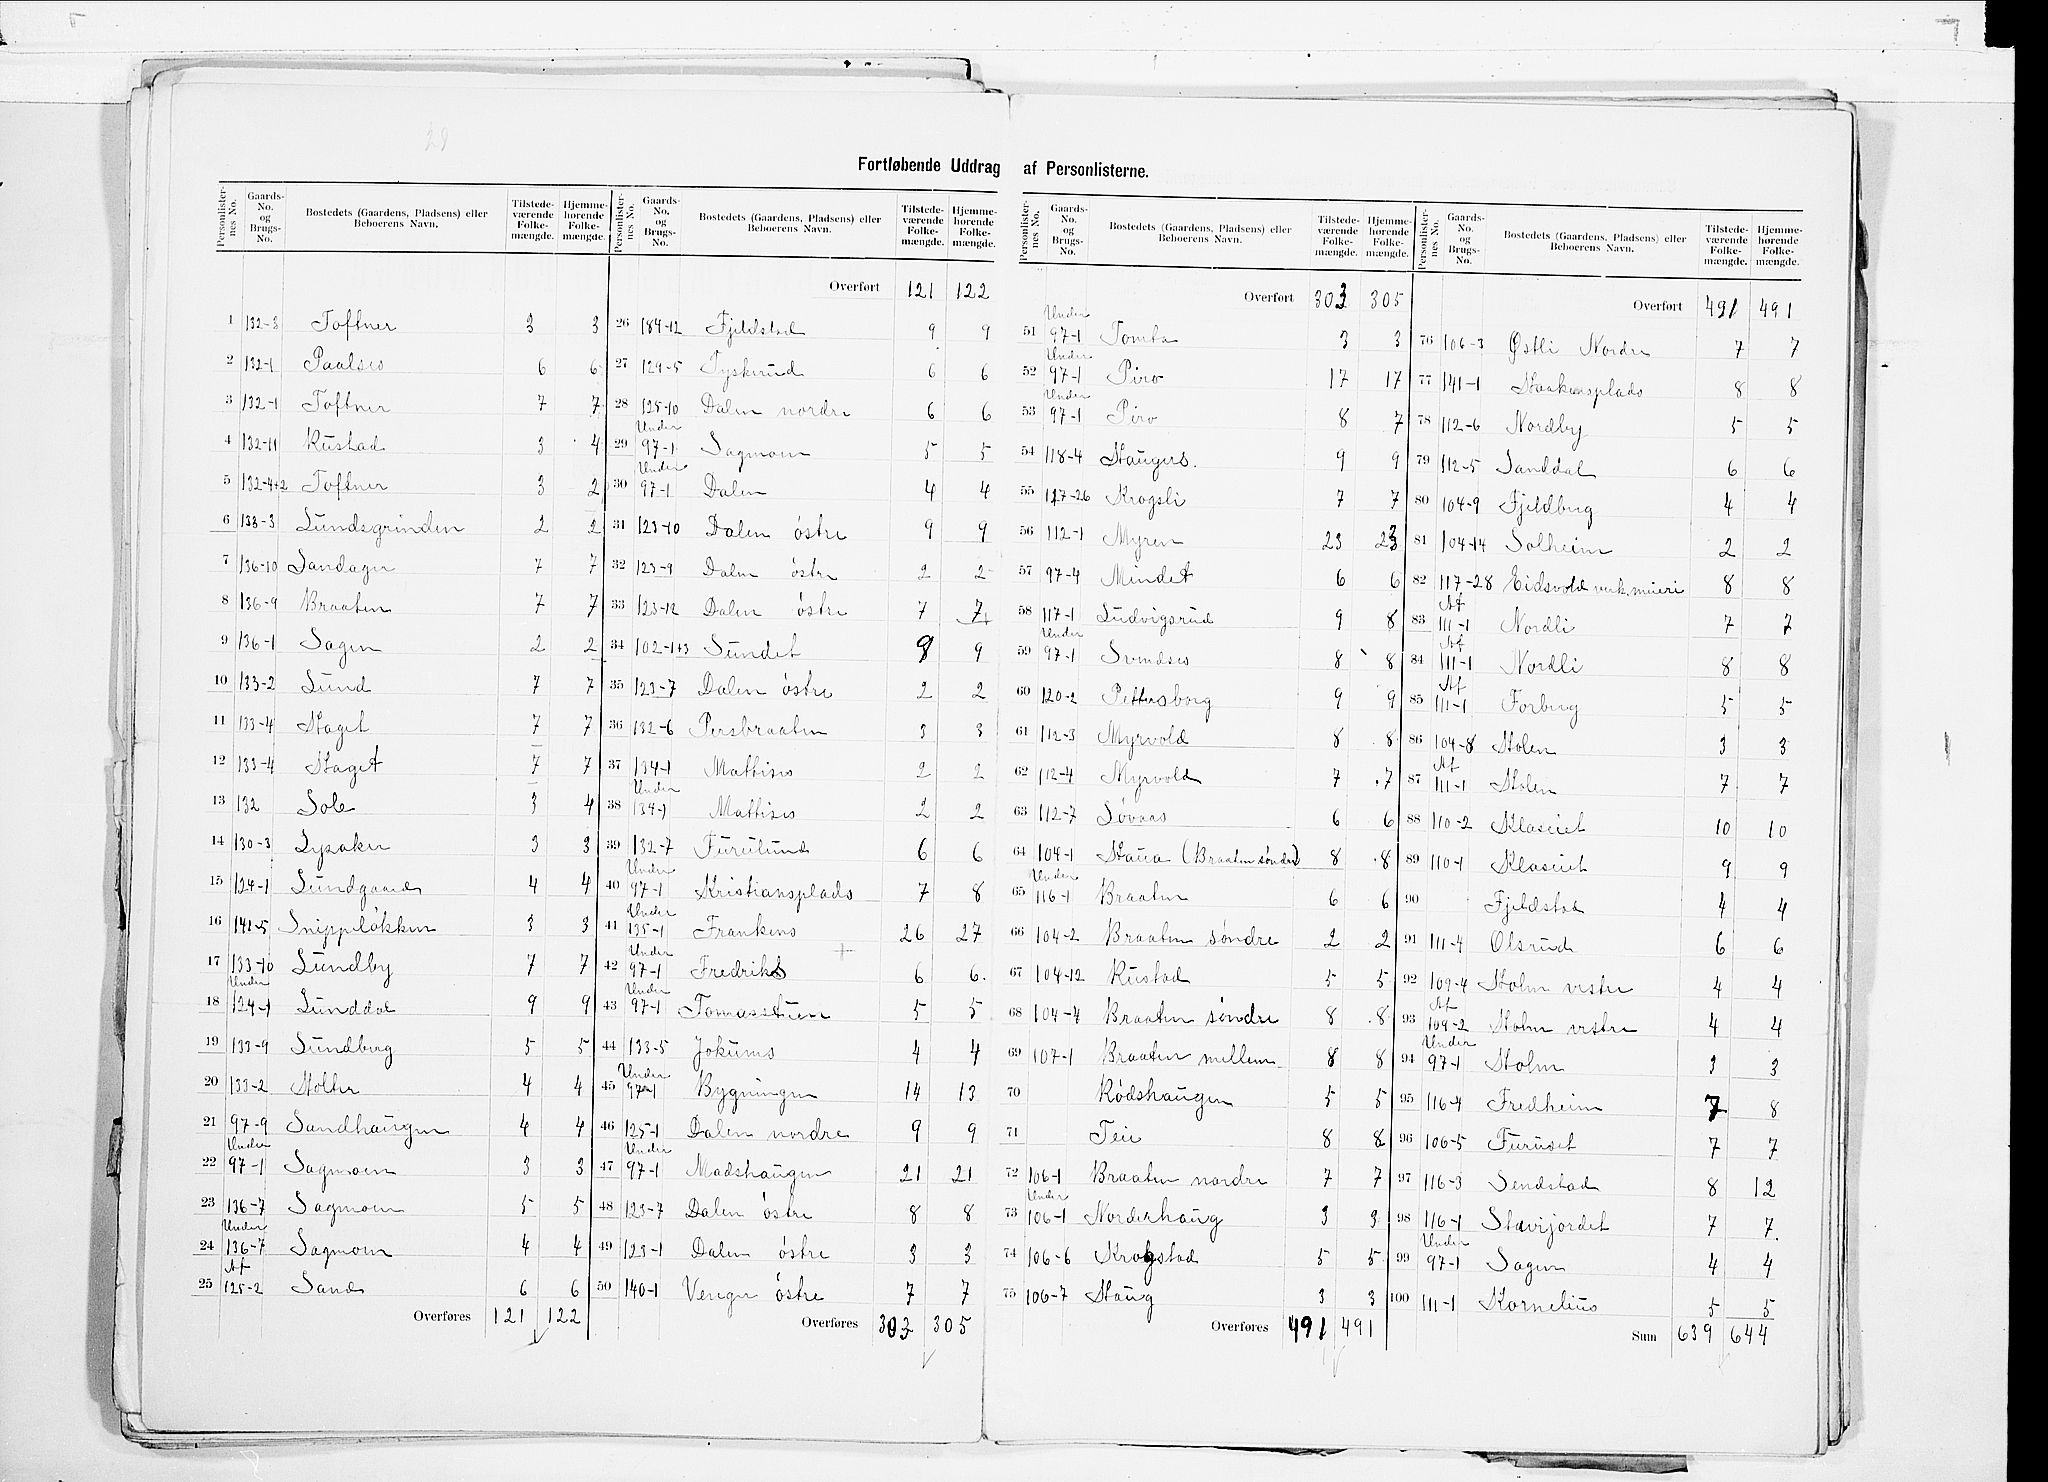 Fortløbende Uddrag af Personlisterne.
Personlister-nes No. Gaards-No. og Brugs-No. Bostedets (Gaardens, Pladsens) eller Beboerens Navn. Tilstede-værende Folke-mængde. Hjemme-hørende Folke-mængde.
1 132-3 Toftner 3 3
2 132-1 Paalses 6 6
3 132-1 Toftner 7 7
4 132-11 Rustad 3 4
5 132-4+2 Toftner 3 2
6 133-3 Lundsgrinden 2 2
7 136-10 Sandager 7 7
8 136-9 Braaten 7 7
9 136-1 Sagen 2 2
10 133-2 Lund 7 7
11 133-4 Haget 7 7
12 133-4 Haget 7 7
13 132 Sole 3 4
14 130-3 Lysaker 3 3
15 124-1 Lundgaard 4 4
16 141-5 Snippeløkken 3 3
17 133-10 Lundby 7 7
18 Under 124-1 Lunddal 9 9
19 133-9 Lundberg 5 5
20 133-2 Holter 4 4
21 97-9 Sandhaugen 4 4
22 Under 97-1 Sagmoen 3 3
23 136-7 Sagmoen 5 5
24 Under 136-7 Sagmoen 4 4
25 Af 125-2 Sand 6 6
Overføres 121 122
Personlister-nes No. Gaards-No. og Brugs-No. Bostedets (Gaardens, Pladsens) eller Beboerens Navn. Tilstede-værende Folke-mængde. Hjemme-hørende Folke-mængde.
Overført 121 122
26 184-12 Fjeldstad 9 9
27 129-5 Tyskerud 6 6
28 125-10 Dalen nordre 6 6
29 Under 97-1 Sagmoen 5 5
30 Under 97-1 Dalen 4 4
31 123-10 Dalen østre 9 9
32 123-9 Dalen østre 2 2
33 123-12 Dalen østre 7 7
34 102-1+3 Sundet 8 9
35 123-7 Dalen østre 2 2
36 132-6 Persbraaten 3 3
37 134-1 Mattises 2 2
38 Under 134-1 Mattises 2 2
39 132-7 Furulund 6 6
40 Under 97-1 Kristiansplads 7 8
41 Under 135-1 Frankens 26 27
42 Under 97-1 Fredriks 6 6
43 Under 97-1 Tomasstuen 5 5
44 133-5 Jokums 4 4
45 Under 97-1 Bygningen 14 13
46 125-1 Dalen nordre 9 9
47 Under 97-1 Madshaugen 21 21
48 123-7 Dalen østre 8 8
49 123-1 Dalen østre 3 3
50 140-1 Venger østre 7 7
Overføres 303 305
Personlister-nes No. Gaards-No. og Brugs-No. Bostedets (Gaardens, Pladsens) eller Beboerens Navn. Tilstede-værende Folke-mængde. Hjemme-hørende Folke-mængde.
Overført 303 305
51 Under 97-1 Tomta 3 3
52 Under 97-1 Piro 17 17
53 Under 97-1 Piro 8 7
54 118-4 Haugers. 9 9
55 127-26 Krogsli 7 7
56 112-1 Myren 23 23
57 97-4 Mindet 6 6
58 117-1 Ludvigsrud 9 8
59 Under 97-1 Svendses 8 8
60 120-2 Pettersborg 9 9
61 112-3 Myrvold 8 8
62 112-4 Myrvold 7 7
63 112-7 Søvaas 6 6
64 104-1 Haua (Braaten søndre) 8 8
65 Under 116-1 Braaten 6 6
66 104-2 Braaten søndre 2 2
67 104-12 Rustad 5 5
68 104-4 Braaten søndre 8 8
69 107-1 Braaten mellem 8 8
70 Rødshaugen 5 5
71 Teie 8 8
72 106-1 Braaten nordre 7 7
73 Under 106-1 Norderhaug 3 3
74 106-6 Krogstad 5 5
75 106-7 Haug 3 3
Overføres 491 491
Personlister-nes No. Gaards-No. og Brugs-No. Bostedets (Gaardens, Pladsens) eller Beboerens Navn. Tilstede-værende Folke-mængde. Hjemme-hørende Folke-mængde.
Overført 491 491
76 106-3 Østli Nordre 7 7
77 141-1 Haakensplads 8 8
78 112-6 Nordby 5 5
79 112-5 Sanddal 6 6
80 104-9 Fjeldberg 4 4
81 104-14 Solheim 2 2
82 117-28 Eidsvold verk.meieri 8 8
83 Af 111-1 Nordli 7 7
84 Af 111-1 Nordli 8 8
85 Af 111-1 Forberg 5 5
86 104-8 Holen 3 3
87 Af 111-1 Holen 7 7
88 110-2 Klaseiet 10 10
89 110-1 Klaseiet 9 9
90 Fjeldstad 4 4
91 111-4 Olsrud 6 6
92 109-4 Holm vestre 4 4
93 Af 109-2 Holm vestre 4 4
94 Under 97-1 Holm 3 3
95 116-4 Fredheim 7 8
96 106-5 Furuset 7 7
97 116-3 Sendstad 8 12
98 116-1 Stavijordet 7 7
99 Under 97-1 Sagen 4 4
100 111-1 Kornelius 5 5
Sum 639 644